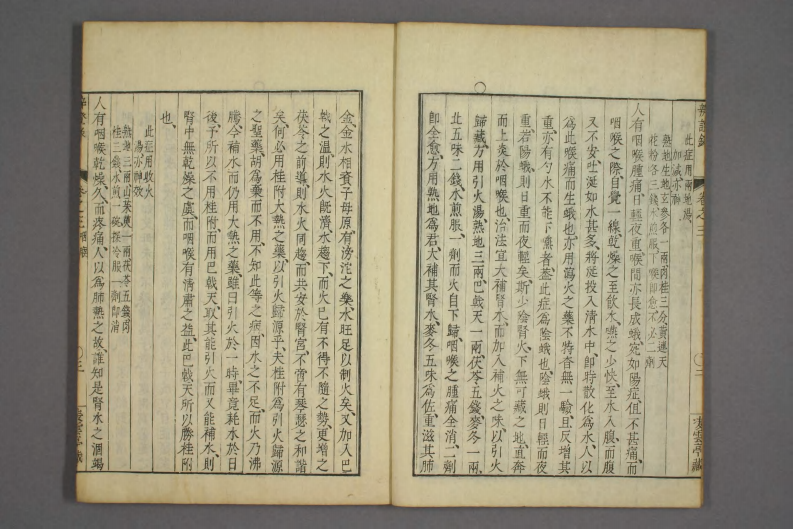 辨證錄 卷之三
此症用兩地湯
加減亦神
熟地生地玄參各一兩肉桂三分黃連天
花粉各三錢水煎服下喉即愈不必二劑
人有咽喉腫痛日輕夜重喉間亦長成蛾宛如陽症但不甚痛而
咽喉之際自覺一線乾燥之至飲水嚥之少快至水入腹而腹
又不安吐涎如水甚多將涎投入清水中即時散化為水人以
為此喉痛而生蛾也亦用瀉火之藥不特杳無一驗且反增其
重亦有勺水不能下嚥者蓋此症為陰蛾也陰蛾則日輕而夜
重若陽蛾則日重而夜輕矣斯少陰腎火下無可藏之地直奔
而上炎於咽喉也治法宜大補腎水而加入補火之味以引火
歸藏方用引火湯熟地三兩巴戟天一兩茯苓五錢麥冬一兩
北五味二錢水煎服一劑而火自下歸咽喉之腫痛全消二劑
即全愈方用熟地為君大補其腎水麥冬五味為佐重滋其肺
金金水相資子母原有滂沱之樂水旺足以制火矣又加入巴
戟之溫則水火既濟水趨下而火已有不得不隨之勢更增之
茯苓之前導則水火同趨而共安於腎宮不啻有琴瑟之和諧
矣何必用桂附大熱之藥以引火歸源乎夫桂附為引火歸源
之聖藥胡為棄而不用不知此等之病因水之不足而火乃沸
騰今補水而仍用大熱之藥雖曰引火於一時畢竟耗水於日
後予所以不用桂附而用巴戟天取其能引火而又能補水則
腎中無乾燥之虞而咽喉有清肅之益此巴戟天所以勝桂附
也
此症用收火
湯亦神效
熟地三兩山茱萸一兩茯苓五錢肉
桂三錢水煎一碗探冷服一劑即消
人有咽喉乾燥久而疼痛人以為肺熱之故誰知是腎水之涸竭